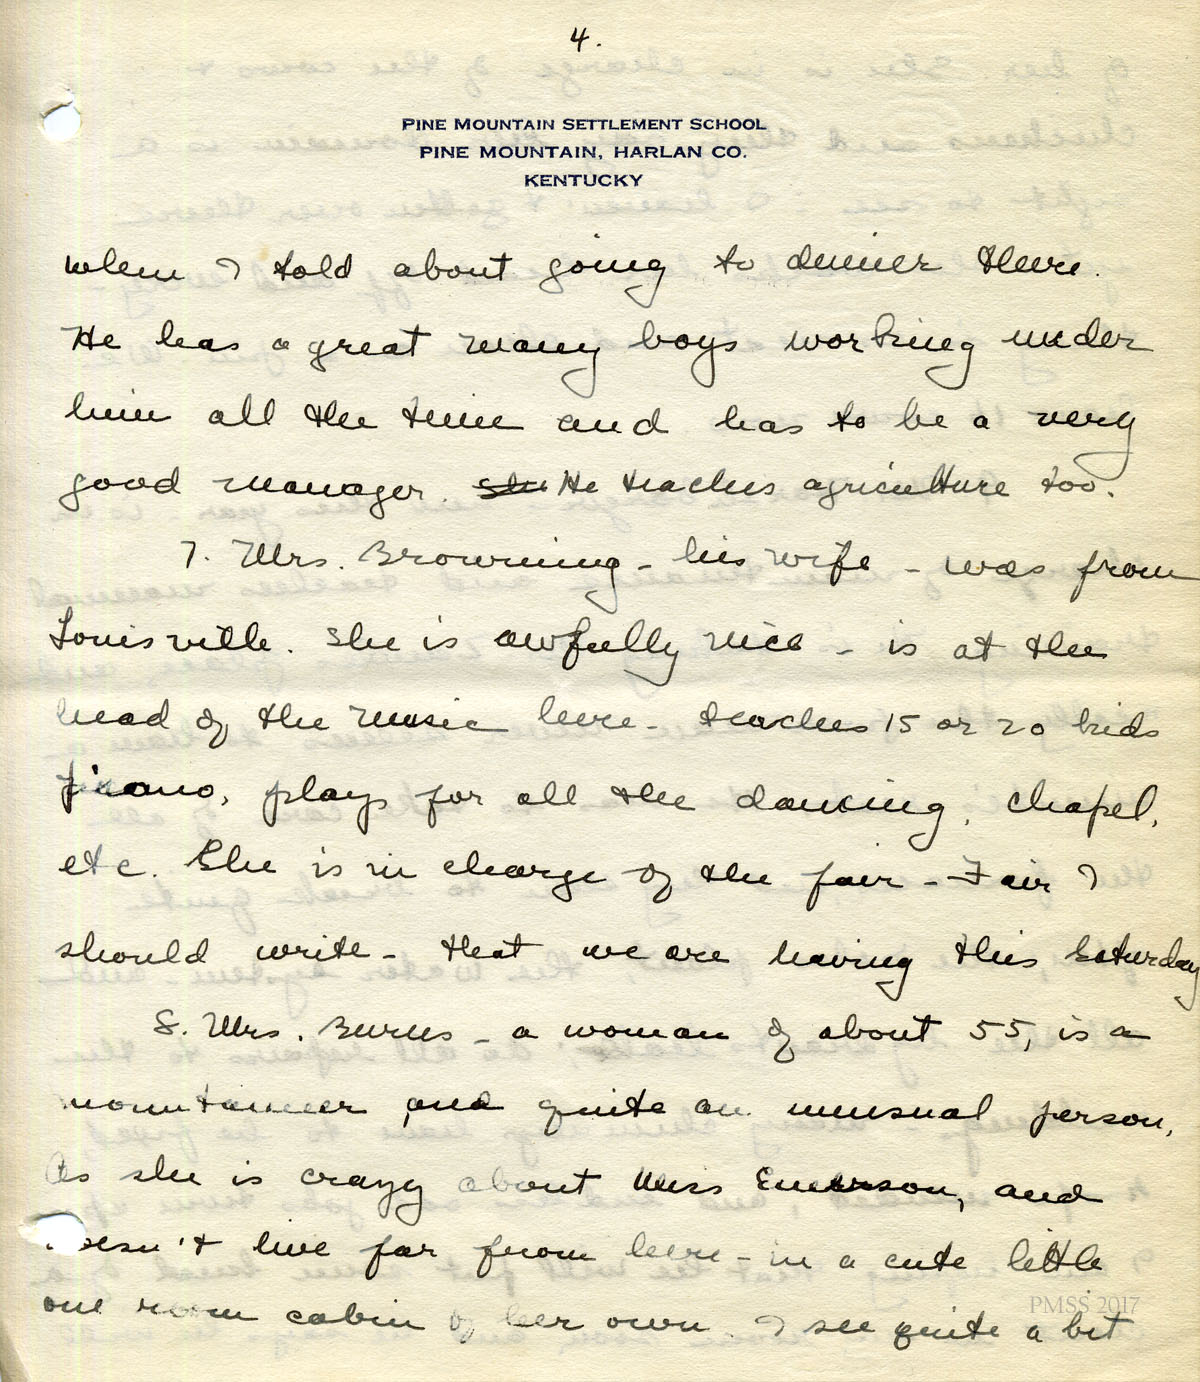 4.
PINE MOUNTAIN SETTLEMENT SCHOOL
PINE MOUNTAIN, HARLAN CO.
KENTUCKY
when I told about going to dinner there.
He has a great many boys working under
him all the time and has to be a very
good manager. She He teaches agriculture too.
7. Mrs. Browning - his wife - was from
Louisville. She is awfully nice - is at the
head of the music here - teaches 15 or 20 kids
piano, plays for all the dancing, chapel,
etc. She is in charge of the fair - Fair I
should write - that we are having this Saturday
8. Mrs. Burns - a woman of about 55, is a
mountaineer and quite an unusual person.
As she is crazy about Miss Emerson, and
doesn't live far from here - in a cute little
one room cabin of her own. I see quite a bit
PMSS 2017